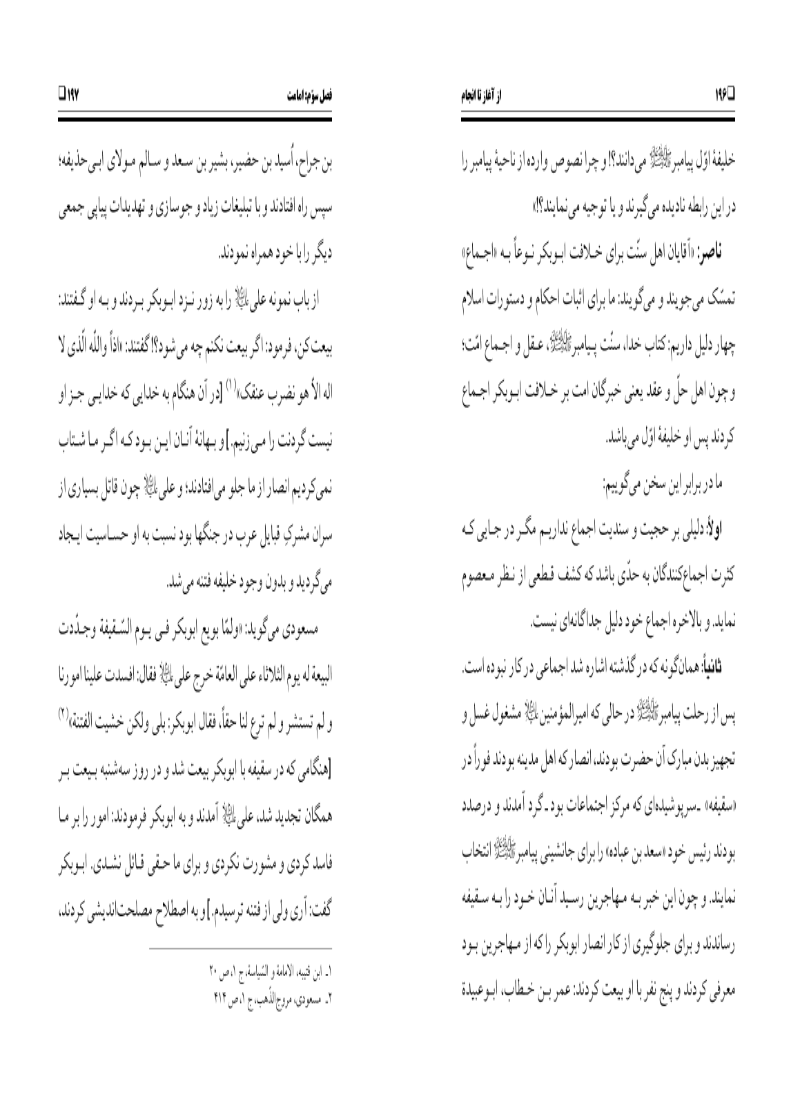 ۱۹۶ از آغاز تا انجام
خلیفهٔ اوّل پیامبرﷺ می‌دانند؟! و چرا نصوص وارده از ناحیهٔ پیامبر را
در این رابطه نادیده می‌گیرند و یا توجیه می‌نمایند؟!»
ناصر: «آقایان اهل سنّت برای خـلافت ابـوبکر نـوعاً بـه «اجـماع»
تمسّک می‌جویند و می‌گویند: ما برای اثبات احکام و دستورات اسلام
چهار دلیل داریم: کتاب خدا، سنّت پـیامبرﷺ، عـقل و اجـماع امّت؛
و چون اهل حلّ و عقد یعنی خبرگان امت بر خـلافت ابـوبکر اجـماع
کردند پس او خلیفهٔ اوّل می‌باشد.
ما در برابر این سخن می‌گوییم:
اولاً: دلیلی بر حجیت و سندیت اجماع نداریـم مگـر در جـایی کـه
کثرت اجماع‌کنندگان به حدّی باشد که کشف قـطعی از نـظر مـعصوم
نماید. و بالاخره اجماع خود دلیل جداگانه‌ای نیست.
ثانیاً: همان‌گونه که در گذشته اشاره شد اجماعی در کار نبوده است.
پس از رحلت پیامبرﷺ در حالی که امیرالمؤمنین علیه‌السلام مشغول غسل و
تجهیز بدن مبارک آن حضرت بودند، انصار که اهل مدینه بودند فوراً در
«سقیفه» ـ سرپوشیده‌ای که مرکز اجتماعات بود ـ گرد آمدند و درصدد
بودند رئیس خود «سعد بن عباده» را برای جانشینی پیامبرﷺ انتخاب
نمایند. و چون این خبر بـه مـهاجرین رسـید آنـان خـود را بـه سـقیفه
رساندند و برای جلوگیری از کار انصار ابوبکر را که از مـهاجرین بـود
معرفی کردند و پنج نفر با او بیعت کردند: عمر بـن خـطاب، ابـوعبیدة
فصل سوّم: امامت ۱۹۷
بن جراح، اُسید بن حضیر، بشیر بن سـعد و سـالم مـولای ابـی‌حذیفه؛
سپس راه افتادند و با تبلیغات زیاد و جوسازی و تهدیدات پیاپی جمعی
دیگر را با خود همراه نمودند.
از باب نمونه علی علیه‌السلام را به زور نـزد ابـوبکر بـردند و بـه او گـفتند:
بیعت کن، فرمود: اگر بیعت نکنم چه می‌شود؟! گفتند: «اذاً واللّه الّذی لا
اله الاّ هو نضرب عنقک»(۱) [در آن هنگام به خدایی که خدایـی جـز او
نیست گردنت را مـی‌زنیم.] و بـهانهٔ آنـان ایـن بـود کـه اگـر مـا شـتاب
نمی‌کردیم انصار از ما جلو می‌افتادند؛ و علی علیه‌السلام چون قاتل بسیاری از
سران مشرکِ قبایل عرب در جنگها بود نسبت به او حسـاسیت ایـجاد
می‌گردید و بدون وجود خلیفه فتنه می‌شد.
مسعودی می‌گوید: «ولمّا بویع ابوبکر فـی یـوم السّـقیفة وجـدّدت
البیعة له یوم الثلاثاء علی العامّة خرج علی علیه‌السلام فقال: افسدت علینا امورنا
و لم تستشر و لم ترع لنا حقاً، فقال ابوبکر: بلی ولکن خشیت الفتنة»(۲)
[هنگامی که در سقیفه با ابوبکر بیعت شد و در روز سه‌شنبه بـیعت بـر
همگان تجدید شد، علی علیه‌السلام آمدند و به ابوبکر فرمودند: امور را بر مـا
فاسد کردی و مشورت نکردی و برای ما حـقی قـائل نشـدی. ابـوبکر
گفت: آری ولی از فتنه ترسیدم.] و به اصطلاح مصلحت‌اندیشی کردند،
۱ـ ابن قتیبه، الامامة و السّیاسة، ج ۱، ص ۲۰
۲ـ مسعودی، مروج‌الذّهب، ج ۱، ص ۴۱۴